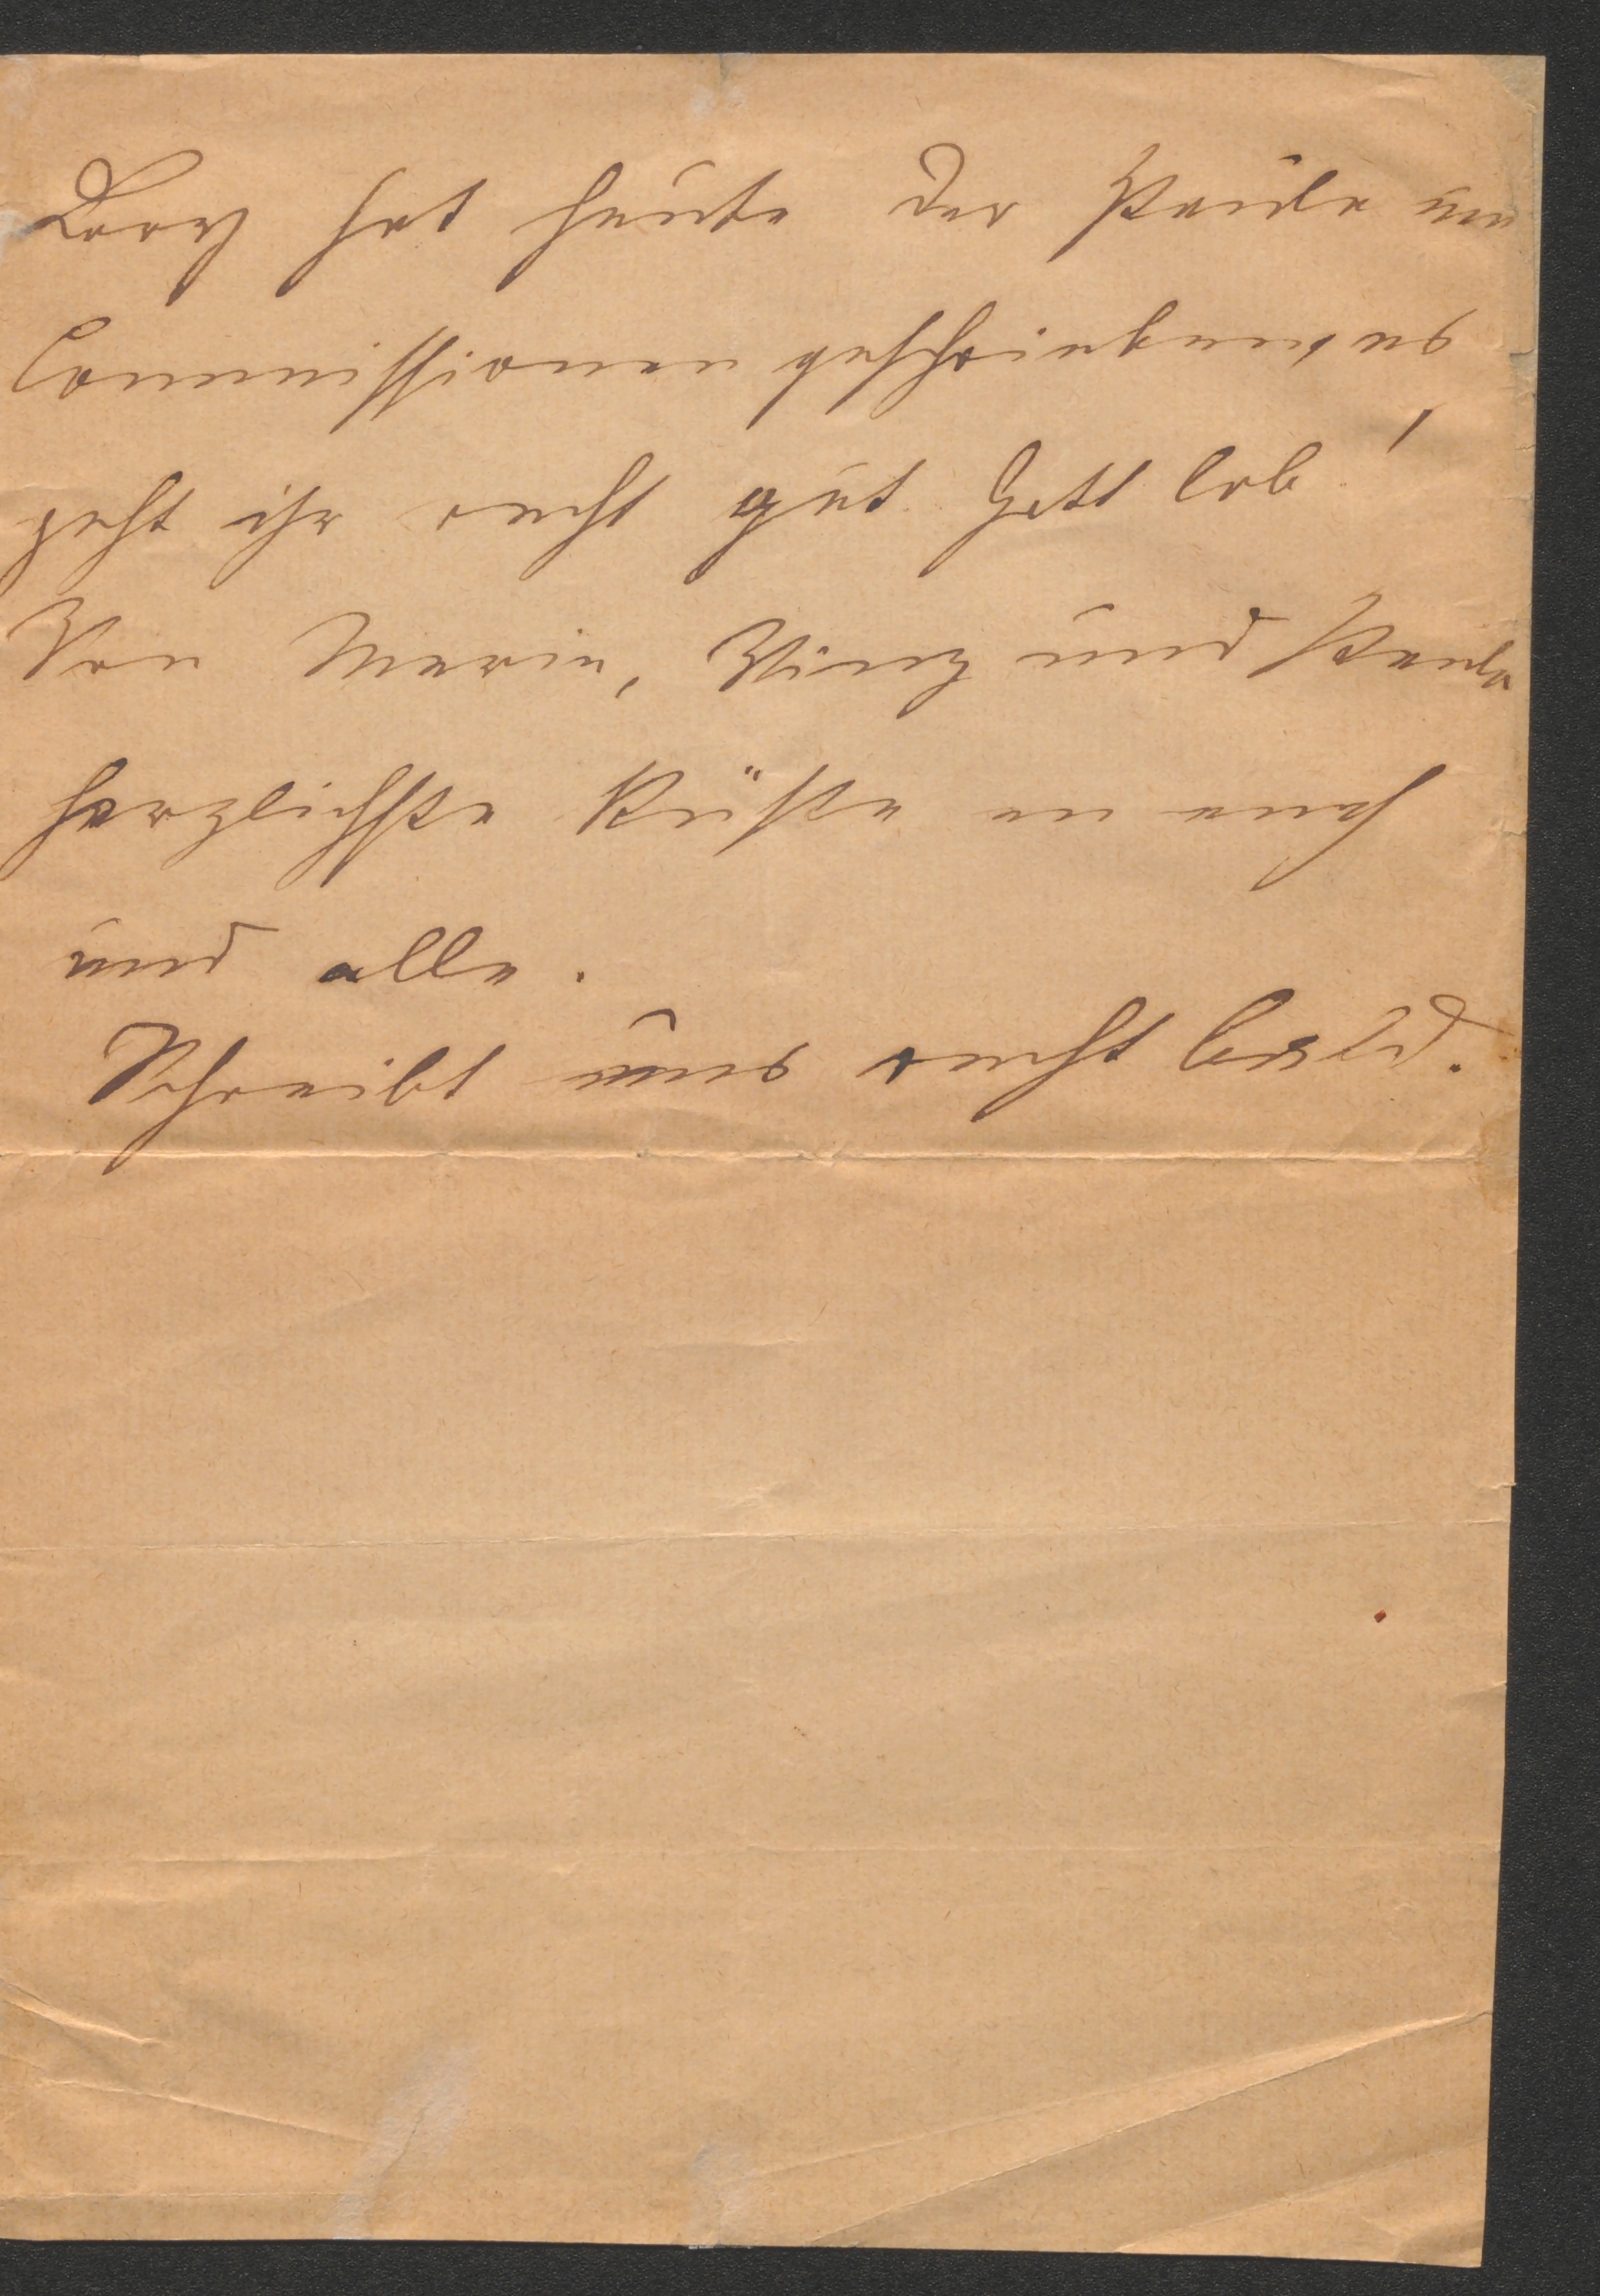 Dory hat heute der Paula um
Commissionen geschrieben, es
geht ihr recht gut Gott lob!
Von Marie, Vinz und Paula
herzlichste Küße an euch
und alle.
Schreibt uns recht bald.